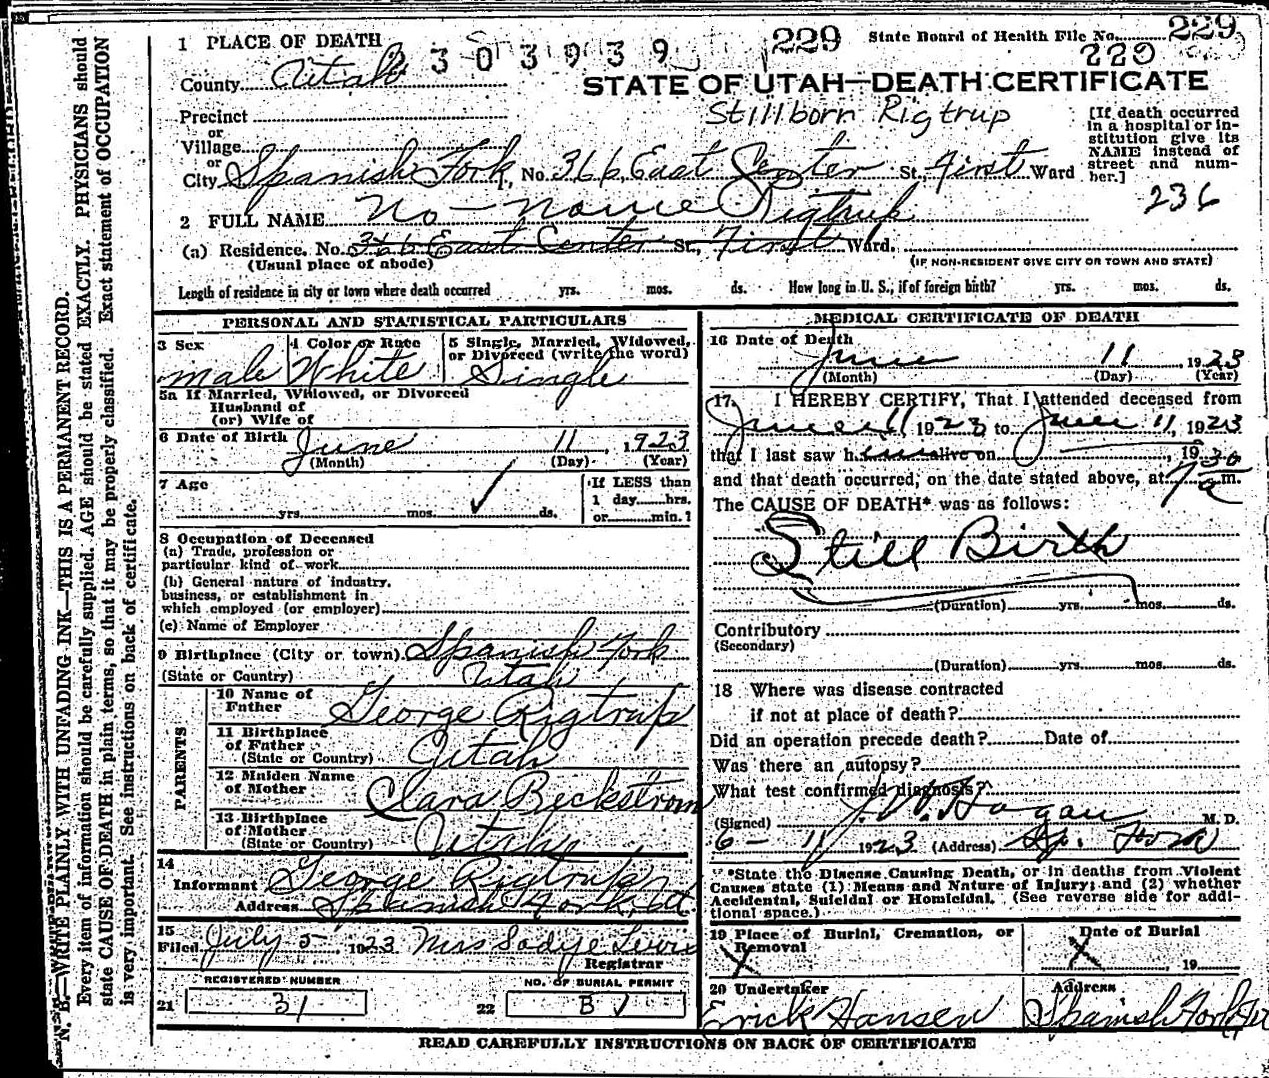 229
2303939 229 State Board of Health File No. 229
1 PLACE OF DEATH 229
County Utah
STATE OF UTAH—DEATH CERTIFICATE
Precinct
Stillborn Rigtrup
or
Village
or
City Spanish Fork, No. 366 East Center St., First Ward
[If death occurred
in a hospital or in-
stitution give its
NAME instead of
street and num-
ber.]
236
2 FULL NAME No-name Rigtrup
(a) Residence. No. 366 East Center St., First Ward.
(Usual place of abode) (IF NON-RESIDENT GIVE CITY OR TOWN AND STATE)
Length of residence in city or town where death occurred yrs. mos. ds. How long in U. S., if of foreign birth? yrs. mos. ds.
PERSONAL AND STATISTICAL PARTICULARS
3 Sex 4 Color or Race 5 Single, Married, Widowed,
or Divorced (write the word)
male White Single
5a If Married, Widowed, or Divorced
Husband of
(or) Wife of
6 Date of Birth June 11, 1923
(Month) (Day) (Year)
7 Age If LESS than
1 day hrs.
yrs. mos. ds. or min.?
8 Occupation of Deceased
(a) Trade, profession or
particular kind of work
(b) General nature of industry,
business, or establishment in
which employed (or employer)
(c) Name of Employer
9 Birthplace (City or town) Spanish Fork
(State or Country) Utah
PARENTS
10 Name of
Father George Rigtrup
11 Birthplace
of Father
(State or Country) Utah
12 Maiden Name
of Mother Clara Beckström
13 Birthplace
of Mother
(State or Country) Utah
14
Informant George Rigtrup
Address Spanish Fork, Ut.
15
Filed July 5 1923 Mrs Sadye Lewis
Registrar
REGISTERED NUMBER NO. OF BURIAL PERMIT
21 31 22 B
MEDICAL CERTIFICATE OF DEATH
16 Date of Death
June 11, 1923
(Month) (Day) (Year)
17. I HEREBY CERTIFY, That I attended deceased from
June 11 1923 to June 11, 1923
that I last saw h im alive on , 19
and that death occurred, on the date stated above, at 7 30 a m.
The CAUSE OF DEATH* was as follows:
Still Birth
(Duration) yrs. mos. ds.
Contributory
(Secondary)
(Duration) yrs. mos. ds.
18 Where was disease contracted
if not at place of death?
Did an operation precede death? Date of
Was there an autopsy? no
What test confirmed diagnosis?
(Signed) J. W. Hagan M. D.
6-11 1923 (Address) Sp. Fork
*State the Disease Causing Death, or in deaths from Violent
Causes state (1) Means and Nature of Injury; and (2) whether
Accidental, Suicidal or Homicidal. (See reverse side for addi-
tional space.)
19 Place of Burial, Cremation, or
Removal
X
Date of Burial
X , 19
20 Undertaker Address
Erick Hansen Spanish Fork
READ CAREFULLY INSTRUCTIONS ON BACK OF CERTIFICATE
N. B.—WRITE PLAINLY WITH UNFADING INK—THIS IS A PERMANENT RECORD.
Every item of information should be carefully supplied. AGE should be stated EXACTLY. PHYSICIANS should
state CAUSE OF DEATH in plain terms, so that it may be properly classified. Exact statement of OCCUPATION
is very important. See instructions on back of certificate.